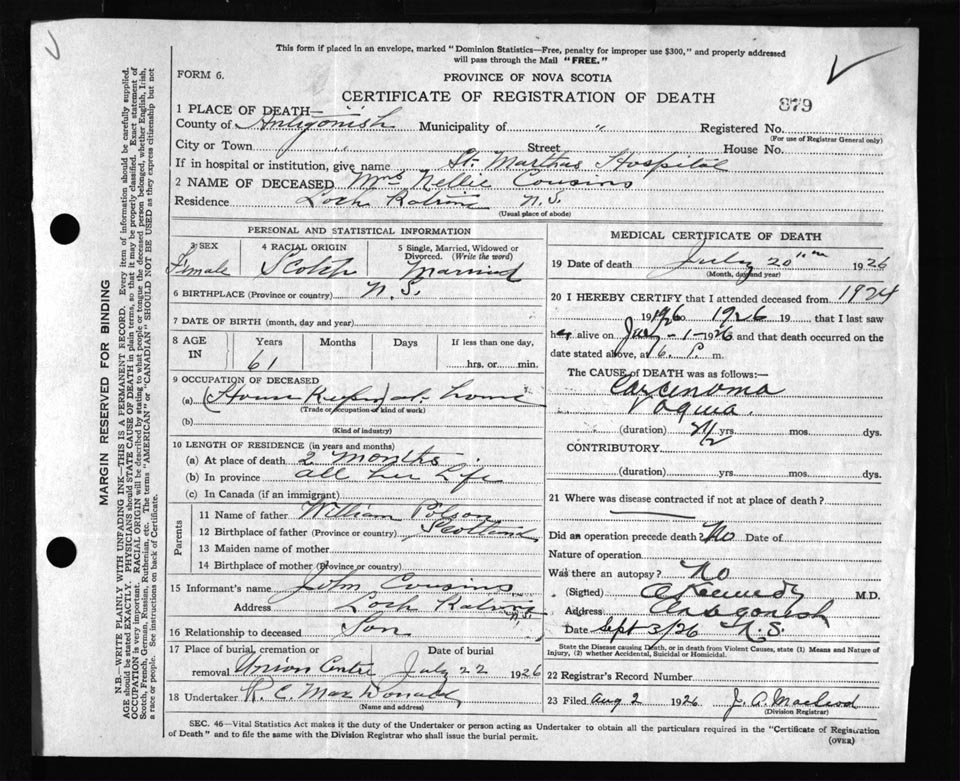 This form if placed in an envelope, marked "Dominion Statistics—Free, penalty for improper use $300," and properly addressed
will pass through the Mail "FREE."
FORM 6.
PROVINCE OF NOVA SCOTIA
CERTIFICATE OF REGISTRATION OF DEATH
879
1 PLACE OF DEATH—
County of Antigonish Municipality of " Registered No.
(For use of Registrar General only)
City or Town " Street House No.
If in hospital or institution, give name St. Marthas Hospital
2 NAME OF DECEASED Mrs Nellie Cousins
Residence Loch Katrine N.S.
(Usual place of abode)
PERSONAL AND STATISTICAL INFORMATION
3 SEX 4 RACIAL ORIGIN 5 Single, Married, Widowed or
Divorced. (Write the word)
Female Scotch Married
6 BIRTHPLACE (Province or country) N.S.
7 DATE OF BIRTH (month, day and year)
8 AGE IN Years Months Days If less than one day,
61 hrs. or min.
9 OCCUPATION OF DECEASED
(a) (House Keeper) at home
(Trade or occupation of kind of work)
(b)
(Kind of industry)
10 LENGTH OF RESIDENCE (in years and months)
(a) At place of death 2 months.
(b) In province all her Life
(c) In Canada (if an immigrant)
Parents
11 Name of father William Polson
12 Birthplace of father (Province or country) Scotland
13 Maiden name of mother
14 Birthplace of mother (Province or country)
15 Informant's name John Cousins
Address Loch Katrine N.S.
16 Relationship to deceased Son
17 Place of burial, cremation or removal Date of burial
Union Centre July 22 1926
18 Undertaker R. C. MacDonald
(Name and address)
MEDICAL CERTIFICATE OF DEATH
19 Date of death July 20th 1926
(Month, day and year)
20 I HEREBY CERTIFY that I attended deceased from 1924
1926 to 1926 19 that I last saw
her alive on July-1-1926 and that death occurred on the
date stated above, at 6. P. m.
The CAUSE of DEATH was as follows:—
Carcinoma
Vagina.
(duration) 2 1/2 yrs. mos. dys.
CONTRIBUTORY
(duration) yrs. mos. dys.
21 Where was disease contracted if not at place of death?
Did an operation precede death No Date of
Nature of operation
Was there an autopsy? No
(Signed) Kennedy M.D.
Address Antigonish
Date Sept 3/26 N.S.
State the Disease causing Death, or in death from Violent Causes, state (1) Means and Nature of
Injury, (2) whether Accidental, Suicidal or Homicidal.
22 Registrar's Record Number
23 Filed Aug 2 1926 J. A. Macleod
(Division Registrar)
SEC. 46—Vital Statistics Act makes it the duty of the Undertaker or person acting as Undertaker to obtain all the particulars required in the "Certificate of Registration
of Death" and to file the same with the Division Registrar who shall issue the burial permit.
(OVER)
MARGIN RESERVED FOR BINDING
N.B.—WRITE PLAINLY WITH UNFADING INK—THIS IS A PERMANENT RECORD. Every item of information should be carefully supplied.
AGE should be stated EXACTLY. PHYSICIANS should STATE CAUSE OF DEATH in plain terms, so that it may be properly classified. Exact statement of
OCCUPATION is very important. RACIAL ORIGIN will be described by stating to what people or tongue the deceased person belonged, whether English, Irish,
Scotch, French, German, Russian, Ruthenian, etc. The terms "AMERICAN" or "CANADIAN" SHOULD NOT BE USED as they express citizenship but not
a race or people. See instructions on back of Certificate.